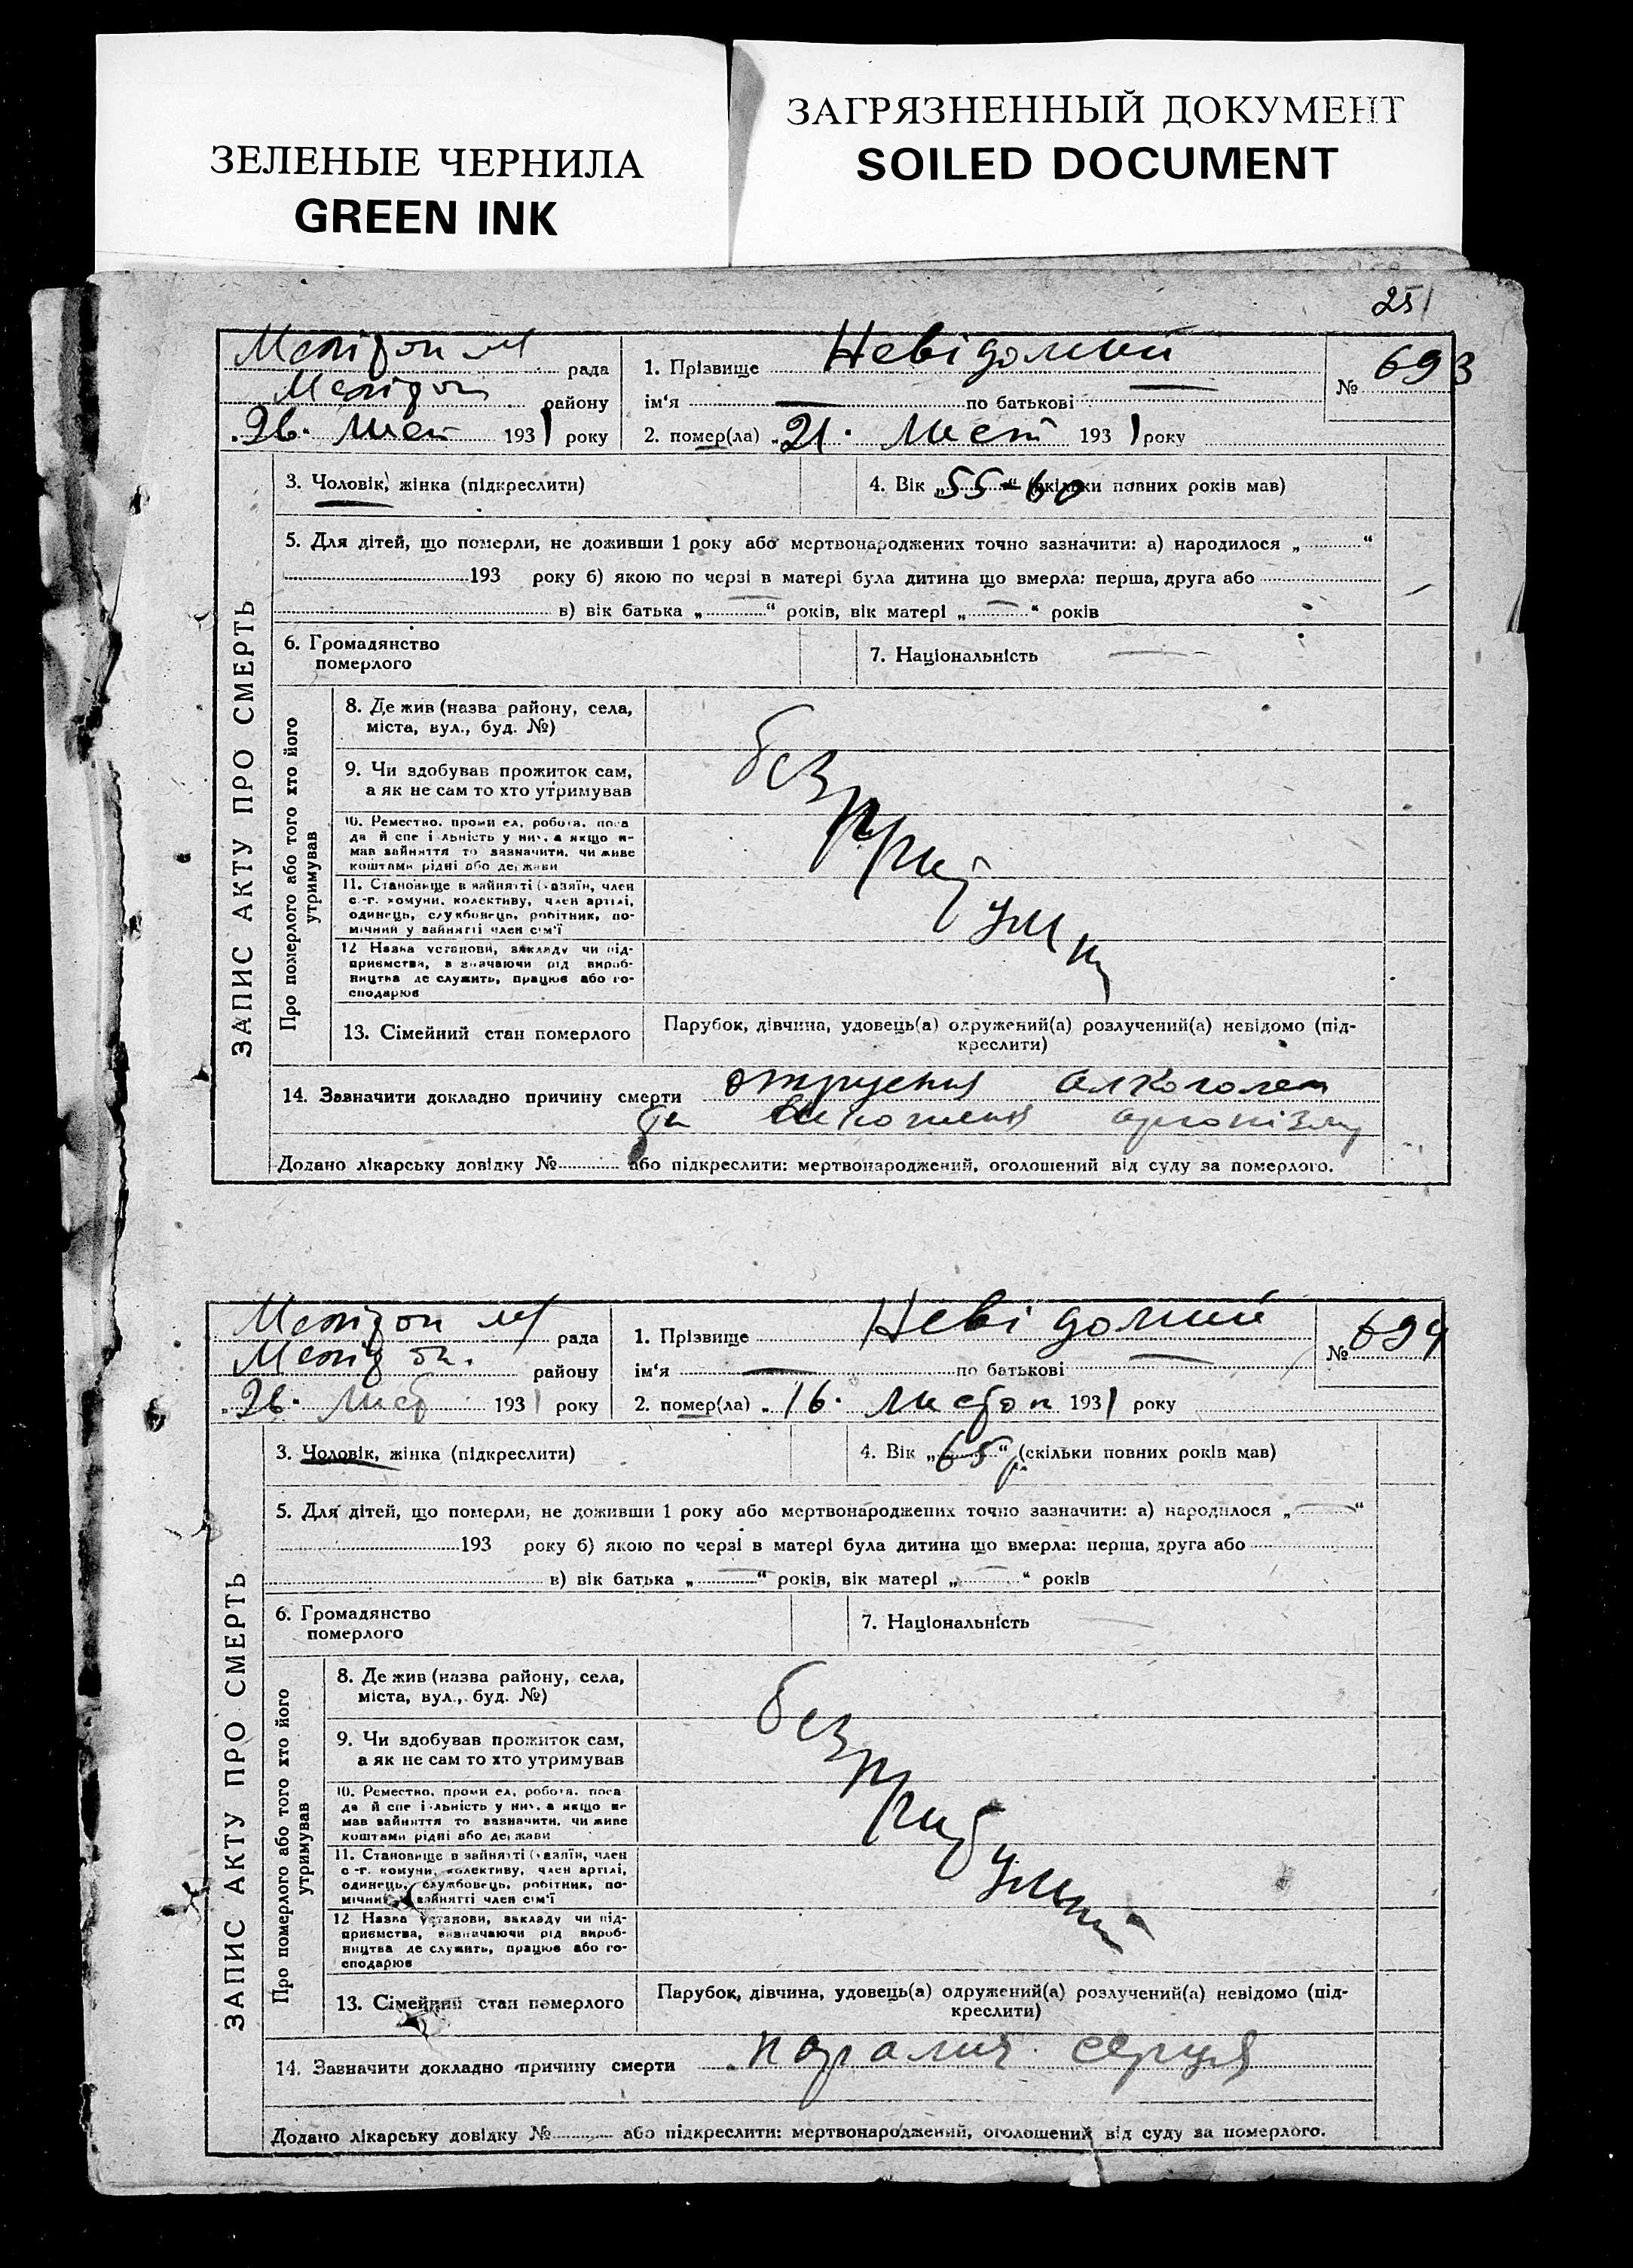 ЗЕЛЕНЫЕ ЧЕРНИЛА
GREEN INK
ЗАГРЯЗНЕННЫЙ ДОКУМЕНТ
SOILED DOCUMENT
251
рада
району
26. Лист 1931 року
1. Прізвище Невідомий
ім‘я — по батькові —
2. помер(ла) „21. Лист 1931 року
№ 693
ЗАПИС АКТУ ПРО СМЕРТЬ
3. Чоловік, жінка (підкреслити)
4. Вік „55-60“ (скільки повних років мав)
5. Для дітей, що померли, не доживши 1 року або мертвонароджених точно зазначити: а) народилося „ “
193 року б) якою по черзі в матері була дитина що вмерла: перша, друга або
в) вік батька „—“ років, вік матері „—“ років
6. Громадянство
померлого
7. Національність —
Про померлого або того хто його
утримував
8. Де жив (назва району, села,
міста, вул., буд. №)
9. Чи здобував прожиток сам,
а як не сам то хто утримував
10. Ремество, проми ел, робота, поса
да й спе і льність у них, а якщо не
мав зайняття то зазначити, чи живе
коштами рідні або держави
11. Становище в зайнятті (хазяїн, член
с.-г. комуни, колективу, член артілі,
одинець, службовець, робітник, по-
мічний у зайнятті член сім'ї
12 Назва установи, закладу чи під-
приємства, зазначаючи рід вироб-
ництва де служить, працює або го-
сподарює
безпритульний
13. Сімейний стан померлого
Парубок, дівчина, удовець(а) одружений(а) розлучений(а) невідомо (під-
креслити)
14. Зазначити докладно причину смерти отруєння алкоголем
організму
Додано лікарську довідку № або підкреслити: мертвонароджений, оголошений від суду за померлого.
рада
району
„26. Лист 1931 року
1. Прізвище Невідомий
ім‘я — по батькові —
2. помер(ла) „16. Листоп 1931 року
№ 694
ЗАПИС АКТУ ПРО СМЕРТЬ
3. Чоловік, жінка (підкреслити)
4. Вік „65“ р. (скільки повних років мав)
5. Для дітей, що померли, не доживши 1 року або мертвонароджених точно зазначити: а) народилося „—“
193 року б) якою по черзі в матері була дитина що вмерла: перша, друга або
в) вік батька „—“ років, вік матері „—“ років
6. Громадянство
померлого
7. Національність —
Про померлого або того хто його
утримував
8. Де жив (назва району, села,
міста, вул., буд. №)
9. Чи здобував прожиток сам,
а як не сам то хто утримував
10. Ремество, проми ел, робота, поса
да й спе і льність у них, а якщо не
мав зайняття то зазначити, чи живе
коштами рідні або держави
11. Становище в зайнятті (хазяїн, член
с.-г. комуни, колективу, член артілі,
одинець, службовець, робітник, по-
мічний у зайнятті член сім'ї
12 Назва установи, закладу чи під-
приємства, зазначаючи рід вироб-
ництва де служить, працює або го-
сподарює
безпритульний
13. Сімейний стан померлого
Парубок, дівчина, удовець(а) одружений(а) розлучений(а) невідомо (під-
креслити)
14. Зазначити докладно причину смерти параліч серця
Додано лікарську довідку № або підкреслити: мертвонароджений, оголошений від суду за померлого.